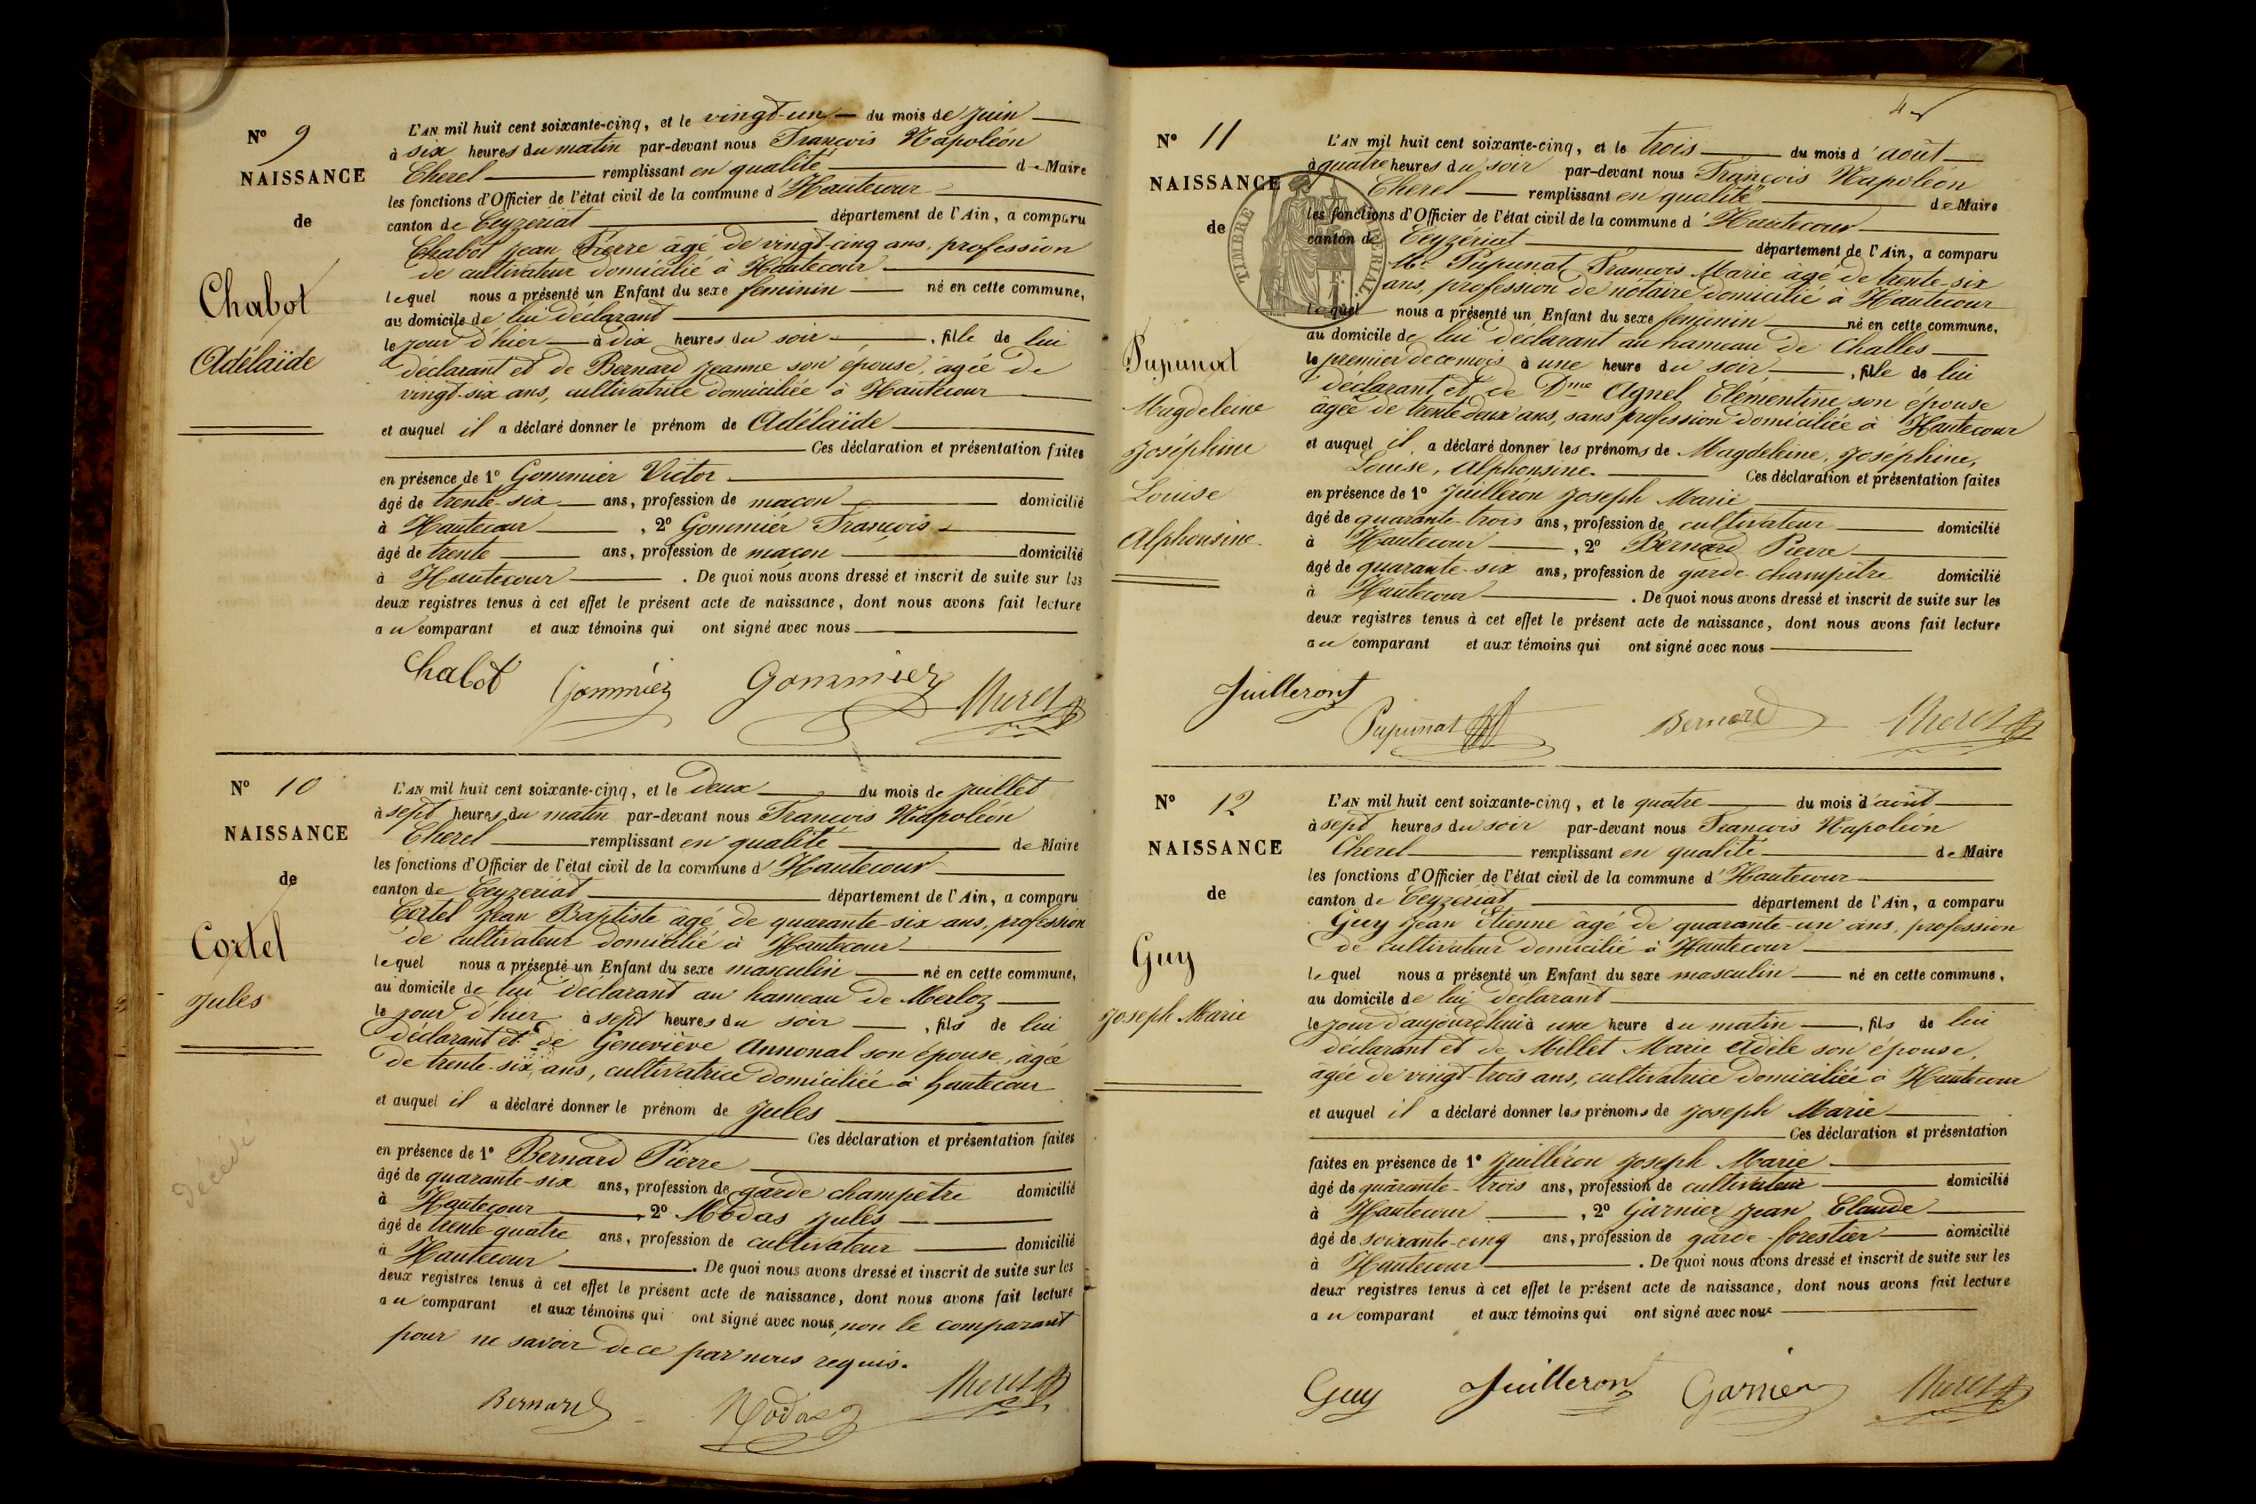 N° 9
NAISSANCE
de
Chabot
Adélaïde
L'AN mil huit cent soixante-cinq, et le vingt-un du mois de juin
à six heures du matin par-devant nous François Napoléon
Cherel remplissant en qualité de Maire
les fonctions d'Officier de l'état civil de la commune d'Hautecour
canton de Ceyzeriat département de l'Ain, a comparu
Chabot Jean Pierre âgé de vingt-cinq ans, profession
de cultivateur domicilié à Hautecour
lequel nous a présenté un Enfant du sexe feminin né en cette commune,
au domicile de lui déclarant
le jour d'hier à dix heures du soir, fille de lui
déclarant et de Bernard Jeanne son épouse, âgée de
vingt-six ans, cultivatrice domiciliée à Hautecour
et auquel il a déclaré donner le prénom de Adélaïde
Ces déclaration et présentation faites
en présence de 1° Gommier Victor
âgé de trente-six ans, profession de maçon domicilié
à Hautecour, 2° Gommier François
âgé de trente ans, profession de maçon domicilié
à Hautecour. De quoi nous avons dressé et inscrit de suite sur les
deux registres tenus à cet effet le présent acte de naissance, dont nous avons fait lecture
au comparant et aux témoins qui ont signé avec nous
Chabot Gommier Gommier Cherel
N° 10
NAISSANCE
de
Cortel
Jules
décédé
L'AN mil huit cent soixante-cinq, et le deux du mois de juillet
à sept heures du matin par-devant nous François Napoléon
Cherel remplissant en qualité de Maire
les fonctions d'Officier de l'état civil de la commune d'Hautecour
canton de Ceyzeriat département de l'Ain, a comparu
Cortel Jean Baptiste âgé de quarante-six ans, profession
de cultivateur domicilié à Hautecour
lequel nous a présenté un Enfant du sexe masculin né en cette commune,
au domicile de lui déclarant au hameau de Merloz
le jour d'hier à sept heures du soir, fils de lui
déclarant et de Geneviève Annonal son épouse, âgée
de trente-six ans, cultivatrice domiciliée à hautecour
et auquel il a déclaré donner le prénom de Jules
Ces déclaration et présentation faites
en présence de 1° Bernard Pierre
âgé de quarante-six ans, profession de garde champêtre domicilié
à Hautecour, 2° Modas Jules
âgé de trente-quatre ans, profession de cultivateur domicilié
à Hautecour. De quoi nous avons dressé et inscrit de suite sur les
deux registres tenus à cet effet le présent acte de naissance, dont nous avons fait lecture
au comparant et aux témoins qui ont signé avec nous, non le comparant
pour ne savoir de ce par nous requis.
Bernard Modas Cherel
N° 11
NAISSANCE
de
TIMBRE IMPERIAL
Pupunat
Magdeleine
Joséphine
Louise
Alphonsine
L'AN mil huit cent soixante-cinq, et le trois du mois d'août
à quatre heures du soir par-devant nous François Napoléon
Cherel remplissant en qualité de Maire
les fonctions d'Officier de l'état civil de la commune d'Hautecour
canton de Ceyzériat département de l'Ain, a comparu
Mr Pupunat François Marie âgé de trente-six
ans, profession de notaire domicilié à Hautecour
lequel nous a présenté un Enfant du sexe feminin né en cette commune,
au domicile de lui déclarant au hameau de Challes
le premier de ce mois à une heure du soir, fille de lui
déclarant et de Dme Agnel Clémentine son épouse
âgée de trente deux ans, sans profession domiciliée à Hautecour
et auquel il a déclaré donner les prénoms de Magdeleine, Joséphine,
Louise, Alphonsine. Ces déclaration et présentation faites
en présence de 1° Juilleron Joseph Marie
âgé de quarante-trois ans, profession de cultivateur domicilié
à Hautecour, 2° Bernard Pierre
âgé de quarante-six ans, profession de garde-champêtre domicilié
à Hautecour. De quoi nous avons dressé et inscrit de suite sur les
deux registres tenus à cet effet le présent acte de naissance, dont nous avons fait lecture
au comparant et aux témoins qui ont signé avec nous
Juilleron
Pupunat Bernard Cherel
N° 12
NAISSANCE
de
Guy
Joseph Marie
L'AN mil huit cent soixante-cinq, et le quatre du mois d'août
à sept heures du soir par-devant nous François Napoléon
Cherel remplissant en qualité de Maire
les fonctions d'Officier de l'état civil de la commune d'Hautecour
canton de Ceyzériat département de l'Ain, a comparu
Guy Jean Etienne âgé de quarante-un ans, profession
de cultivateur domicilié à Hautecour
lequel nous a présenté un Enfant du sexe masculin né en cette commune,
au domicile de lui déclarant
le jour d'aujourd'hui à une heure du matin, fils de lui
déclarant et de Millet Marie Adèle son épouse,
âgée de vingt-trois ans, cultivatrice domiciliée à Hautecour
et auquel il a déclaré donner les prénoms de Joseph Marie
Ces déclaration et présentation
faites en présence de 1° Juilléron Joseph Marie
âgé de quarante-trois ans, profession de cultivateur domicilié
à Hautecour, 2° Garnier Jean Claude
âgé de soixante-cinq ans, profession de garde-forestier domicilié
à Hautecour. De quoi nous avons dressé et inscrit de suite sur les
deux registres tenus à cet effet le présent acte de naissance, dont nous avons fait lecture
au comparant et aux témoins qui ont signé avec nous
Guy Juilleron Garnier Cherel